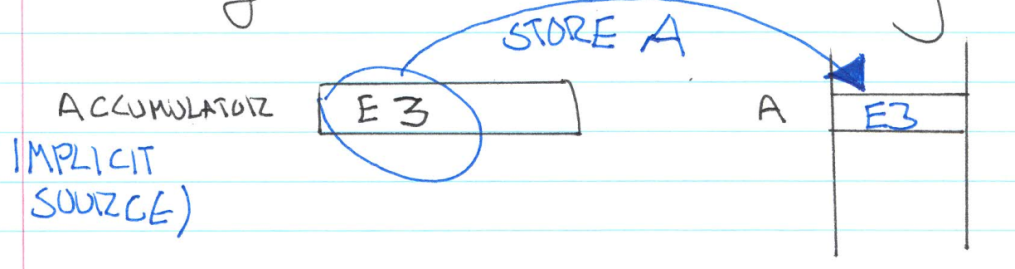 STORE A
ACCUMULATOR E3 A E3
IMPLICIT
SOURCE)